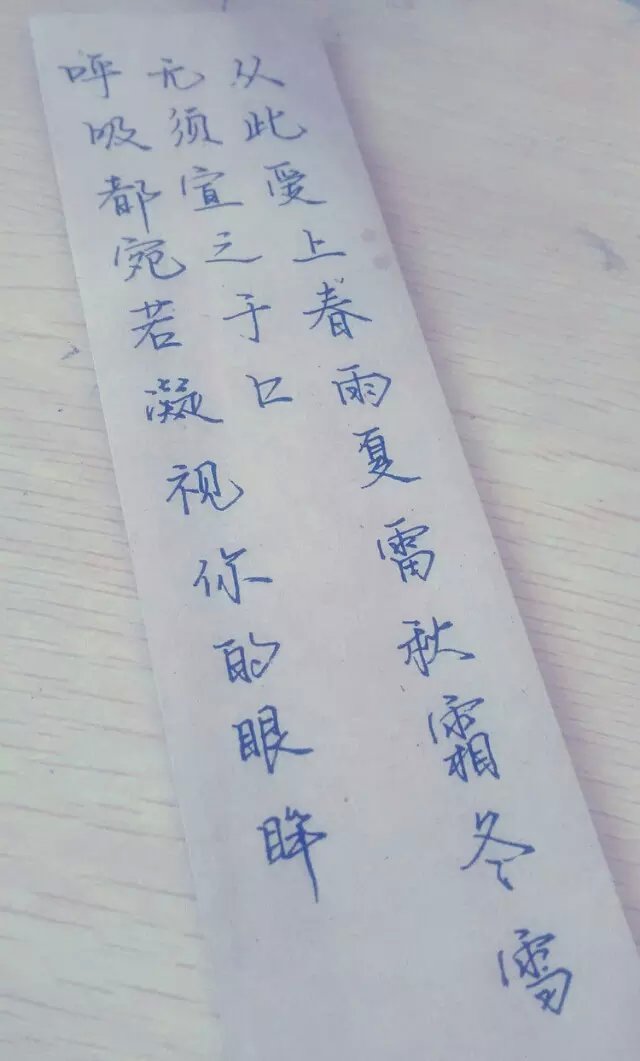 从此爱上春雨夏雷秋霜冬雪
无须宣之于口
呼吸都宛若凝视你的眼眸